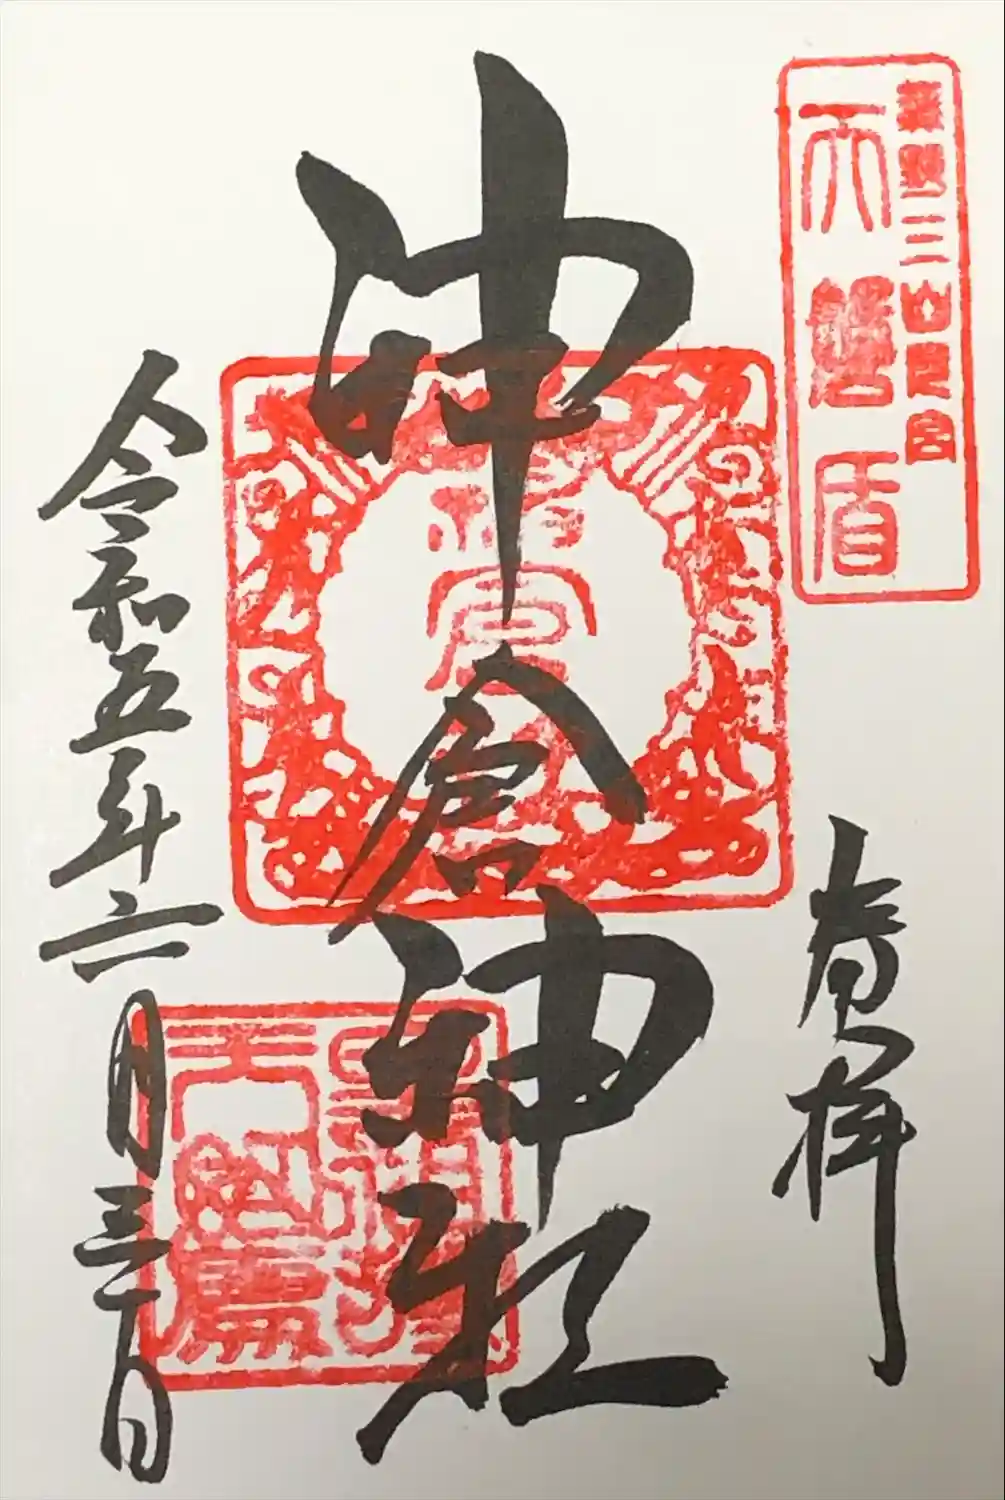 熊野三山元宮
天磐盾
奉拝
神倉神社
令和五年六月三十日